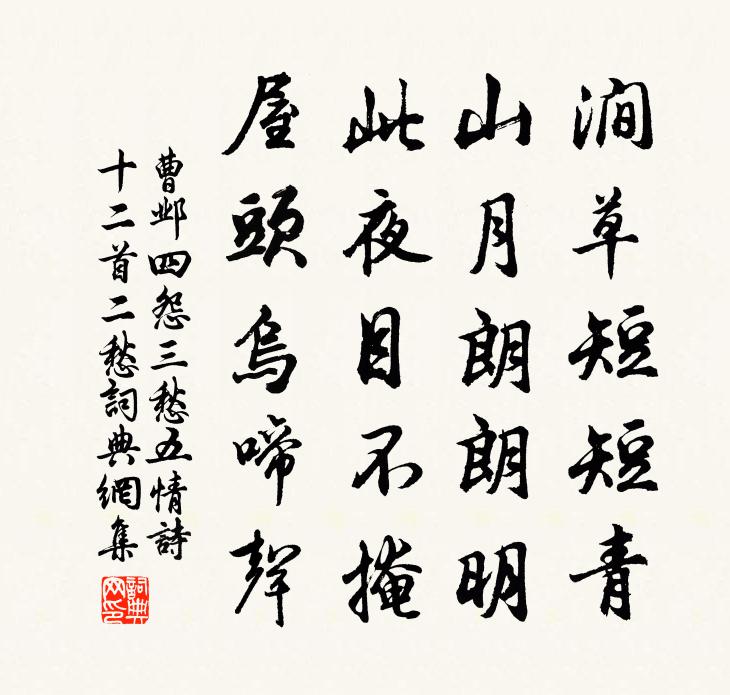 澗草短短青
山月朗朗明
此夜目不掩
屋頭烏啼聲
曹邺四怨三愁五情詩
十二首二愁詞典網集
詞典
网印